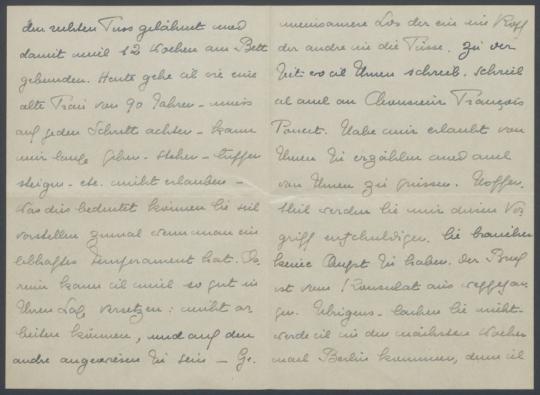 den rechten Fuss gelähmt und
damit mich 12 Wochen am Bett
gebunden. Heute gehe ich wie eine
alte Frau von 90 Jahren - muss
auf jeden Schritt achten - kann
mir lange gehen - stehen - Treppen
steigen - etc. nicht erlauben -
was dies bedeutet können Sie sich
vorstellen zumal wenn man ein
lebhaftes Temperament hat. Da-
rein kann ich mich so gut in
Ihren Lage versetzen: nicht ar-
beiten können, und auf den
andre angewiesen zu sein - Ge-
meinsames Los der ein im Kopf
der andre in die Füsse. Zu der
Zeit wo ich Ihnen schrieb, schrieb
ich auch an Monsieur François
Poncet. Habe mir erlaubt von
Ihnen zu erzählen und auch
von Ihnen zu grüssen. Hoffen-
tlich werden Sie mir diesen Vor-
griff entschuldigen. Sie brauchen
keine Angst zu haben. Der Brief
ist vom Konsulat aus weggegan-
gen. Übrigens - lachen Sie nicht -
werde ich in den nächsten Wochen
nach Berlin kommen, denn ich